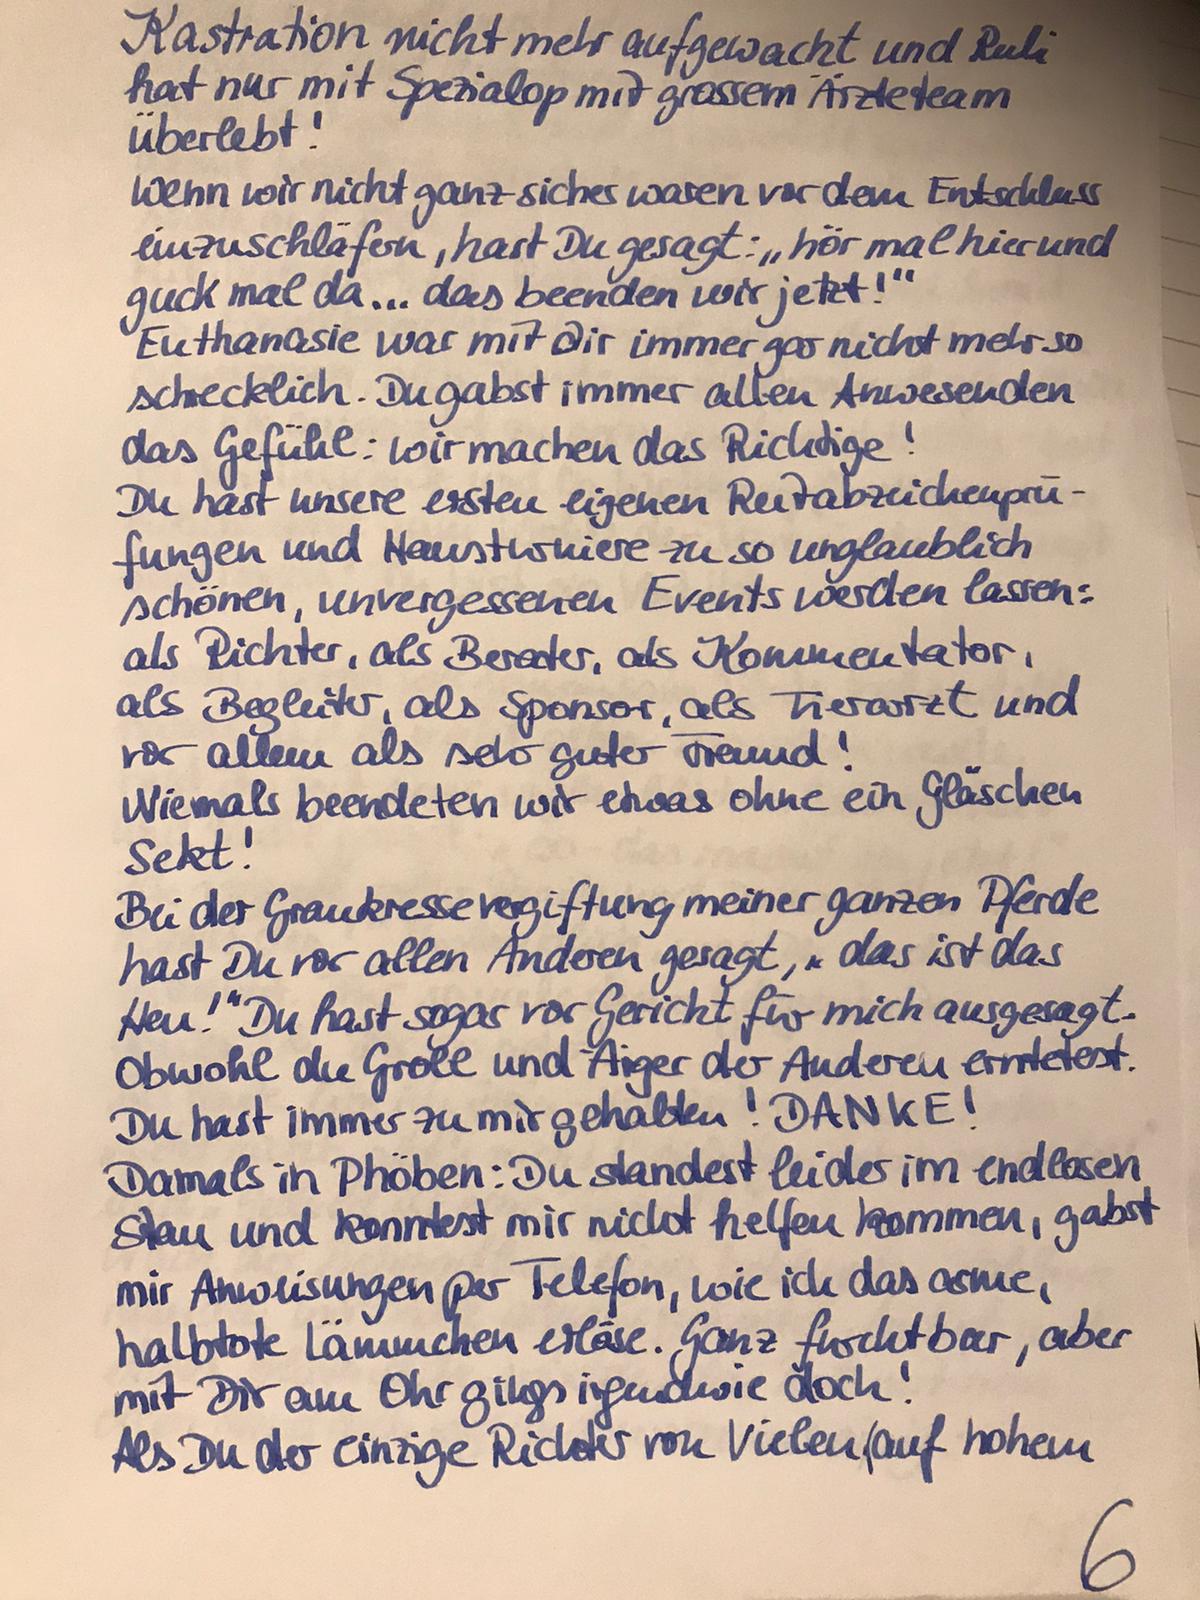 Kastration nicht mehr aufgewacht und Ruli
hat nur mit Spezialop mit grossem Ärzteteam
überlebt!
Wenn wir nicht ganz sicher waren vor dem Entschluss
einzuschläfern, hast Du gesagt: „hör mal hier und
guck mal da... das beenden wir jetzt!"
Euthanasie war mit Dir immer gar nicht mehr so
schrecklich. Du gabst immer allen Anwesenden
das Gefühl: wir machen das Richtige!
Du hast unsere ersten eigenen Reitabzeichenprü-
fungen und Hausturniere zu so unglaublich
schönen, unvergessenen Events werden lassen:
als Richter, als Berater, als Kommentator,
als Begleiter, als Sponsor, als Tierarzt und
vor allem als sehr guter Freund!
Niemals beendeten wir etwas ohne ein Gläschen
Sekt!
Bei der Graukressevergiftung meiner ganzen Pferde
hast Du vor allen Anderen gesagt, „das ist das
Heu!" Du hast sogar vor Gericht für mich ausgesagt.
Obwohl du Groll und Ärger der Anderen erntetest.
Du hast immer zu mir gehalten! DANKE!
Damals in Phöben: Du standest leider im endlosen
Stau und konntest mir nicht helfen kommen, gabst
mir Anweisungen per Telefon, wie ich das arme,
halbtote Lämmchen erlöse. Ganz furchtbar, aber
mit Dir am Ohr gings irgendwie doch!
Als Du der einzige Richter von Vielen (auf hohem
6